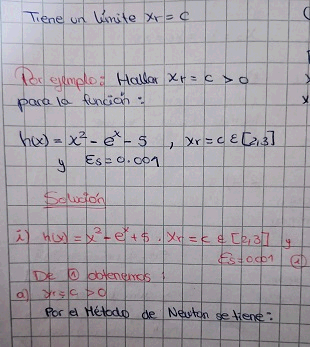 Tiene un límite xr = c
Por ejemplo: Hallar xr = c > 0
para la función:
h(x) = x² - eˣ - 5 , xr = c ε [2,3]
y Es = 0.001
Solución
i) h(x) = x² - eˣ + 5 . xr = c ε [2,3] y
Es = 0.001 ①
De ① obtenemos:
a) xr = c > 0
Por el Método de Newton se tiene: